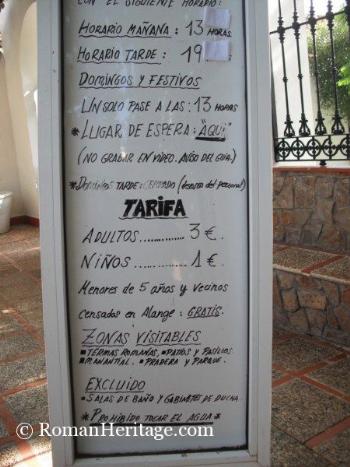 CON EL SIGUIENTE HORARIO:
HORARIO MAÑANA: 13 HORAS
HORARIO TARDE: 19
DOMINGOS Y FESTIVOS
UN SOLO PASE A LAS: 13 HORAS
*LUGAR DE ESPERA: "AQUÍ"
(NO GRABAR EN VIDEO. AVISO DEL GUIA)
*DOMINGOS TARDE: CERRADO (descanso del personal)
TARIFA
ADULTOS.............. 3 €.
NIÑOS .............. 1 €
Menores de 5 años y vecinos
censados en Alange: GRATIS.
ZONAS VISITABLES
▪TERMAS ROMANAS, ▪PATIOS Y PASILLOS.
▪MANANTIAL. ▪PRADERA Y PARQUE.
EXCLUIDO
▪SALAS DE BAÑO Y GABINETES DE DUCHA
*PROHIBIDO TOCAR EL AGUA*
© RomanHeritage.com